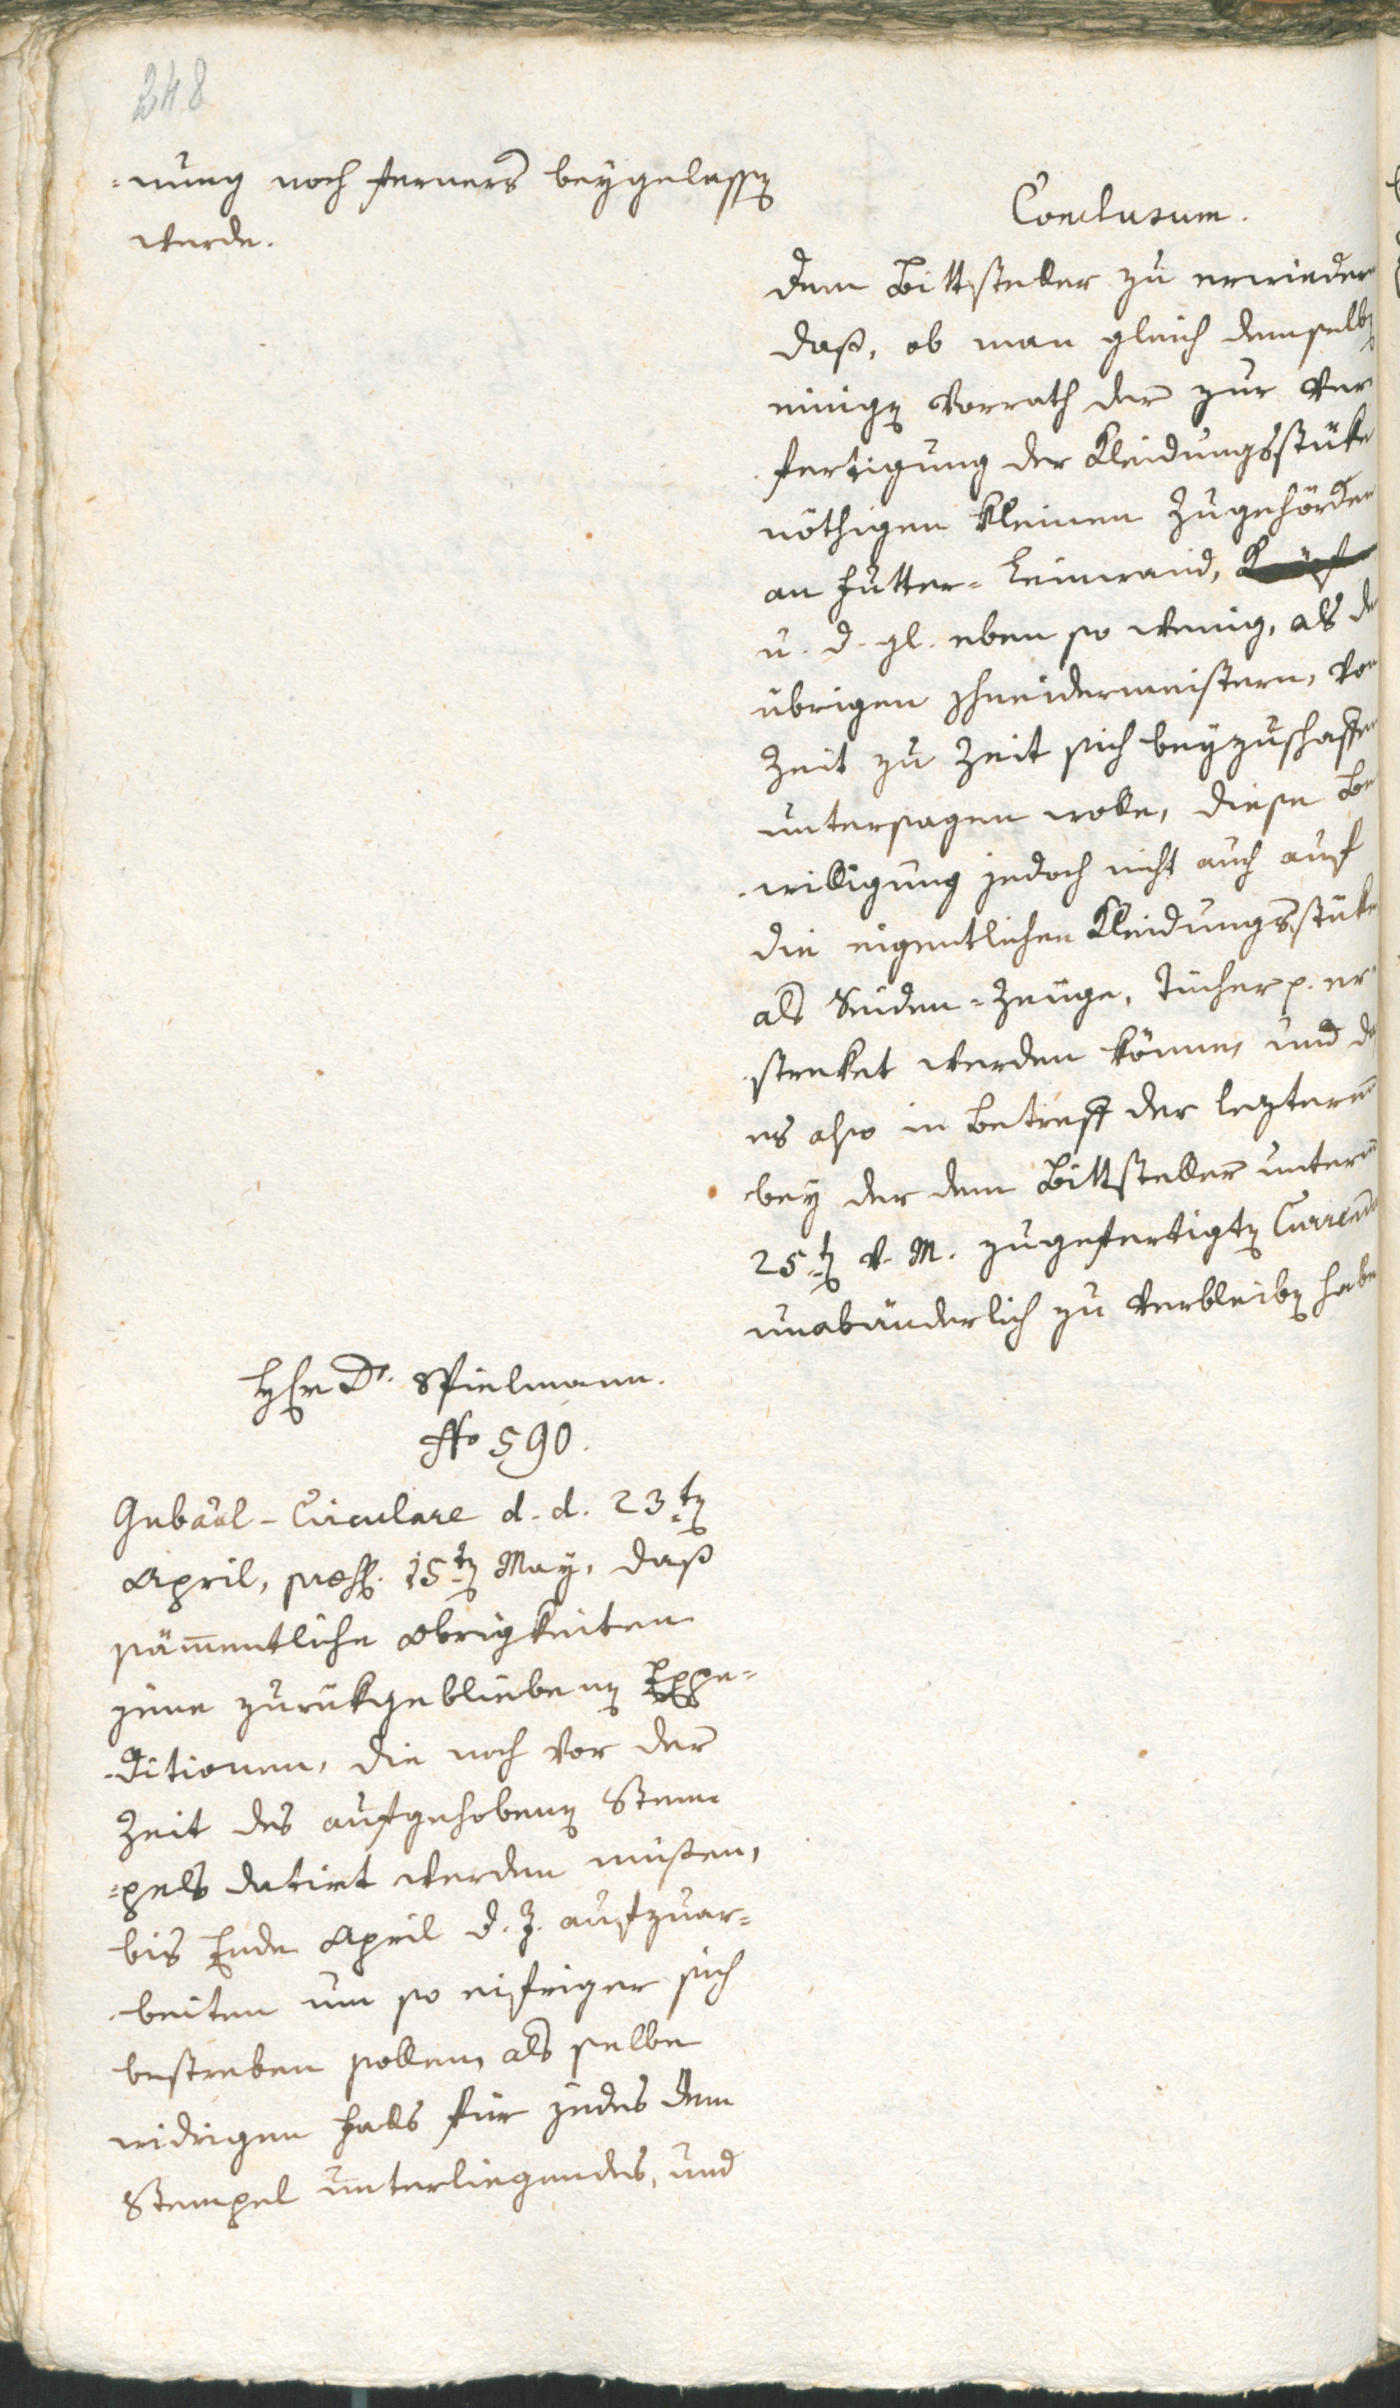 248
-nung noch ferners beygelassen
werde.
Conclusum.
dem Bittsteller zu erwiedern
daß, ob man gleich demselben
einigen Vorrath der zur Ver
fertigung der Kleidungsstüke
nöthigen kleinen Zugehörden
an Futter-Leinwand,
u. d. gl. eben so wenig, als den
übrigen Schneidermeistern, von
Zeit zu Zeit sich beyzuschaffen
untersagen wolle, diese Be
willigung jedoch nicht auch auf
die eigentlichen Kleidungsstüke
als Seiden-Zeuge, Tücher p. er
streket werden könne, und daß
es also in Betreff der lezteren
bey der dem Bittsteller unterm
25ten v. M. zugefertigten Currenda
unabänderlich zu verbleiben habe
Herr Dr. Spielmann.
No 590.
Gubaal-Circulare d. d. 23ten
April, praes. 15ten May, daß
sämmentliche Obrigkeiten
jene zurükgebliebenen Expe-
-ditionen, die noch vor der
Zeit des aufgehobenen Stem
-pels datirt werden müßen,
bis Ende April d. J. aufzuar-
beiten um so eifriger sich
bestreben sollen, als selbe
widrigen Falls für jedes dem
Stempel unterliegendes, und